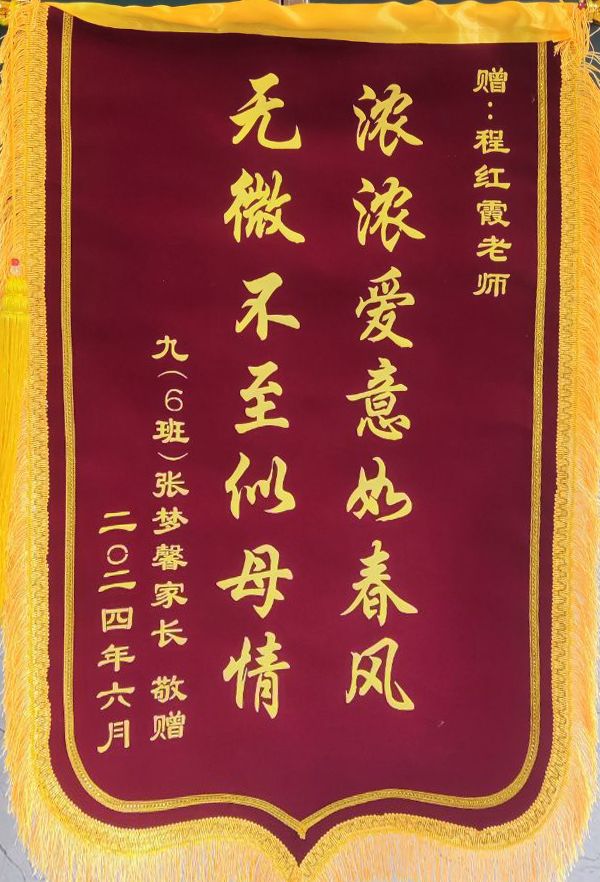 赠：程红霞老师
浓浓爱意如春风
无微不至似母情
九（6班）张梦馨家长 敬赠
二〇二四年六月